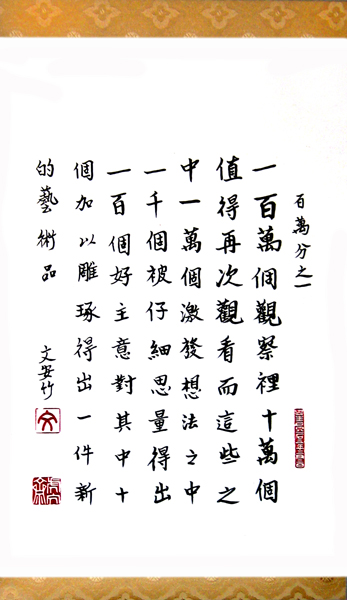 百萬分之一
一百萬個觀察裡十萬個
值得再次觀看而這些之
中一萬個激發想法之中
一千個被仔細思量得出
一百個好主意對其中十
個加以雕琢得出一件新
的藝術品
文安竹
文